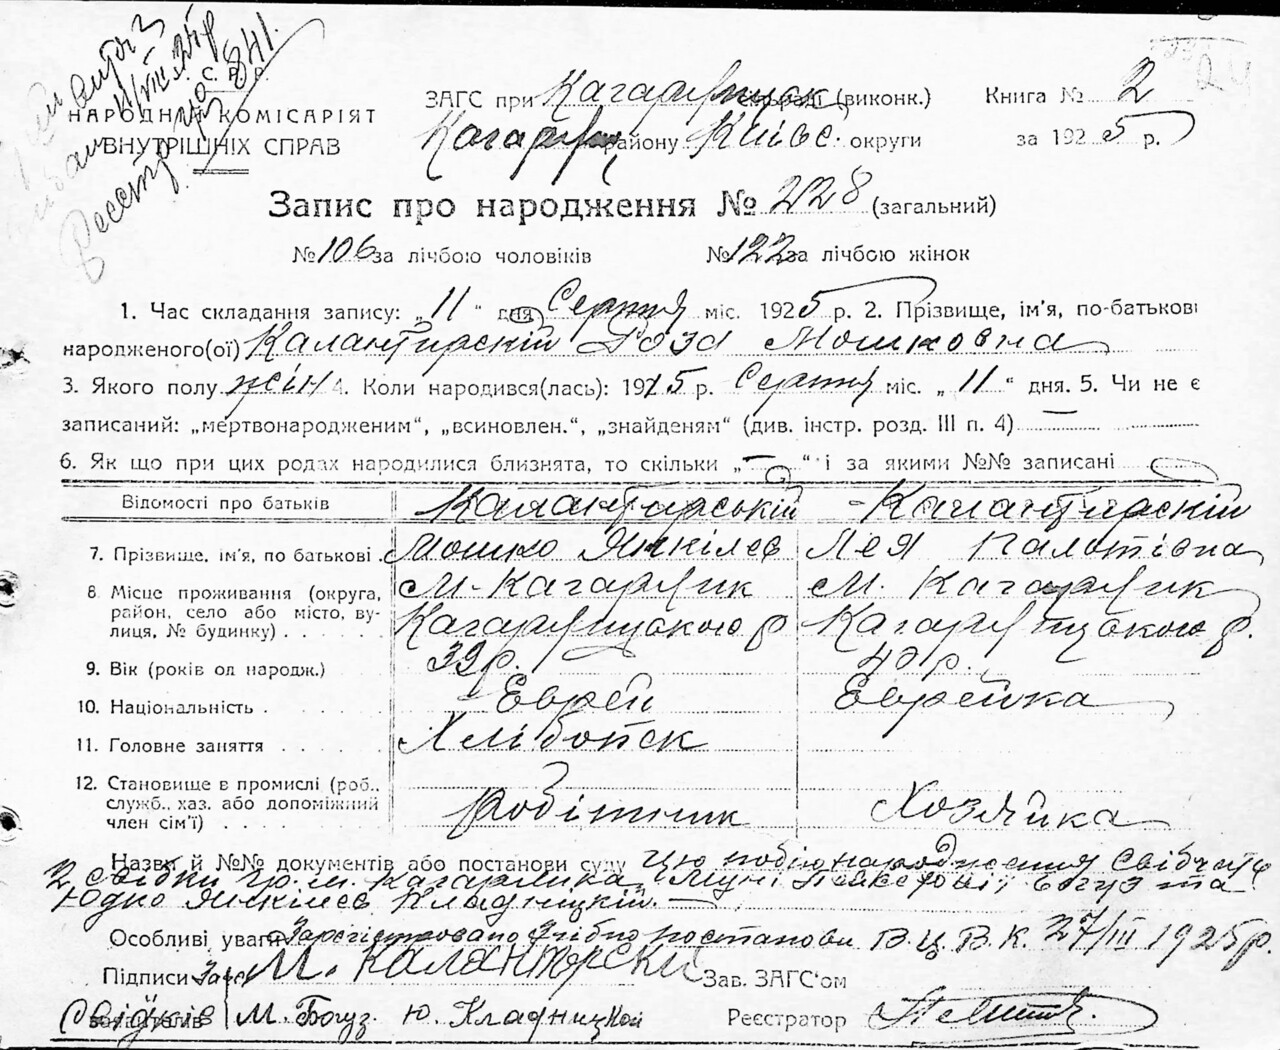 видано
11/VIII 25 р
Реєстр. № 841.
У. С. Р. Р.
НАРОДНИЙ КОМІСАРІЯТ
ВНУТРІШНІХ СПРАВ
ЗАГС при Кагарлицьк. сельраді (виконк.) Книга № 2
Кагарл. району Київс. округи за 1925 р.
Запис про народження № 228 (загальний)
№ 106 за лічбою чоловіків № 122 за лічбою жінок
1. Час складання запису: „11“ дня Серпня міс. 1925 р. 2. Прізвище, ім'я, по-батькові
народженого(ої) Калантирскій Роза Мошковна
3. Якого полу жін 4. Коли народився(лась): 1915 р. Серпня міс. „11“ дня. 5. Чи не є
записаний: „мертвонародженим“, „всиновлен.“, „знайденям“ (див. інстр. розд. III п. 4) —
6. Як що при цих родах народилися близнята, то скільки „—“ і за якими №№ записані
Відомості про батьків Калантирський Калантирскій
7. Прізвище, ім'я, по батькові Мошко Янкілев Лея
8 Місце проживання (округа, район, село або місто, вулиця, № будинку) м. Кагарлик м. Кагарлик
Кагарлицького р. Кагарлицького р.
9. Вік (років од народж.) 39 р. 40 р.
10. Національність Еврей Еврейка
11. Головне заняття Хлібопек
12. Становище в промислі (роб., служб., хаз. або допоміжний член сім'ї) робітник Хозяйка
Назви й №№ документів або постанови суду Цю подію народження свідчать
2 свідки гр. м. Кагарлика Богуз та
Юдко Янкілев Кладницкій. —
Особливі уваги Зареєстровано згідно постанови В.Ц.В.К. 27/III 1925 р.
Підписи Заяв. М. Калантирски Зав. ЗАГС'ом
свідків М. Богуз. Ю. Кладницкой Реєстратор